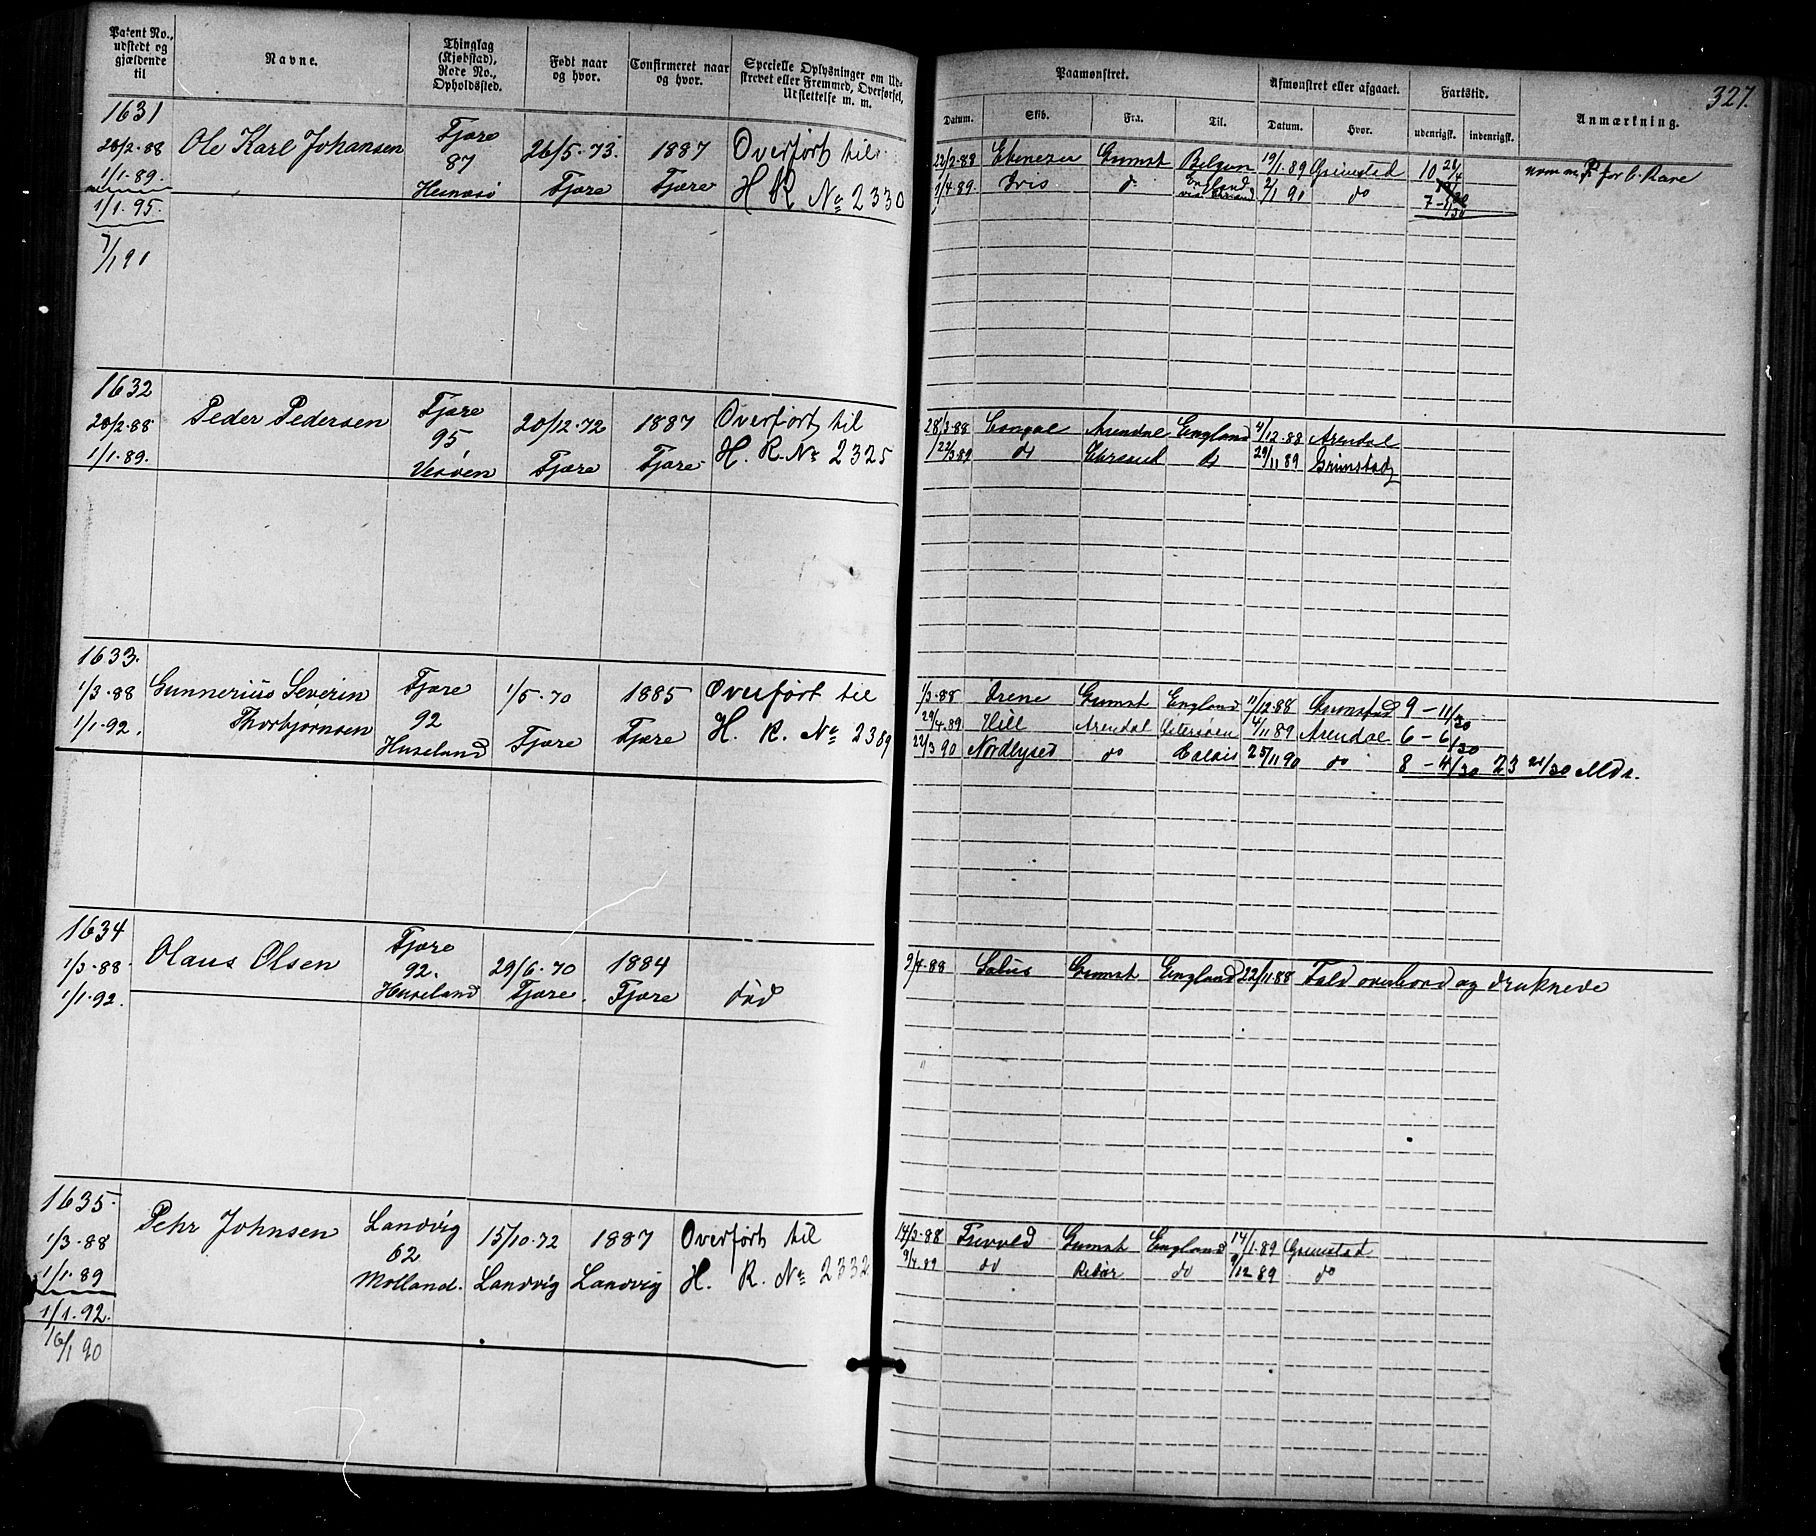 Patent No., udstedt og gjældende til
Navne.
Thinglag (Kjøbstad), Rode No., Opholdssted.
Født naar og hvor.
Confirmeret naar og hvor.
Specielle Oplysninger om Udskrevet eller Fremmed, Overførsel, Udslettelse m. m.
Paamønstret.
Afmønstret eller afgaaet.
Fartstid.
Anmærkning.
327.
Datum.
Skib.
Fra.
Til.
Datum.
Hvor.
udenrigsk.
indenrigsk.
1631
20/2-88
1/1-89.
1/1-95.
7/1 91
Ole Karl Johansen
Fjære
87
26/5-73.
Fjære
1887
Fjære
Overført til
H R No 2330
22/2-88 Ebenezer Grmst 19/1-89 Grimstad 10
1/4 89. Iris do England 2/1 90 do 7
1632
20/2-88
1/1-89.
Peder Pedersen
Fjære
95
Vesøen
20/12-72
Fjære
1887
Fjære
Overført til
H. R. No 2325
28/3-88 Arendal England 4/12-88 Arendal
22/3 89 do do 29/11 89 Grimstad
1633.
1/3-88
1/1-92.
Gunnerius Severin
Thorbjørnsen
Fjære
92
Huseland
1/5-70
Fjære
1885
Fjære
Overført til
H. R. No 2389
1/3-88 Irene Grmst England 11/12-88 Grimstad 9 - 11/30
29/4-89 Hill Arendal 4/11 89 Arendal 6 - 6/30
22/3 90 Nordlyset do Calais 25/11 90 do 8 - 4/30 23 21/30 Mdr.
1634
1/3-88
1/1-92.
Olaus Olsen
Fjære
92.
Huseland
29/6-70
Fjære
1884
Fjære
død
9/4-88 Solus Grmst England 22/11-88 Fald overbord og druknede
1635.
1/3-88
1/1-89
1/1-92.
16/1 90
Pehr Johnsen
Landvig
62
Molland.
15/10-72
Landvig
1887
Landvig
Overført til
H. R. No 2332
14/3-88 Grmst England 14/1-89 Grimstad
9/4 89 do do 9/12 89 do